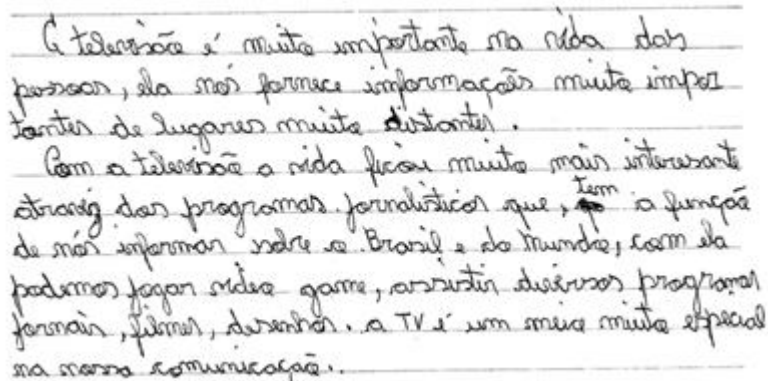 A televisão é muito importante na vida das
pessoas, ela nós fornece informações muito impor
tantes de lugares muito distantes.
Com a televisão a vida ficou muito mais interesante
atraviz dos programas jornalisticos que, tem a função
de nós informar sobre o Brasil e do mundo, com ela
podemos jogar video game, assistir diversos programas
jornais, filmes, desenhos. a TV é um meio muito especial
na nossa comunicação..